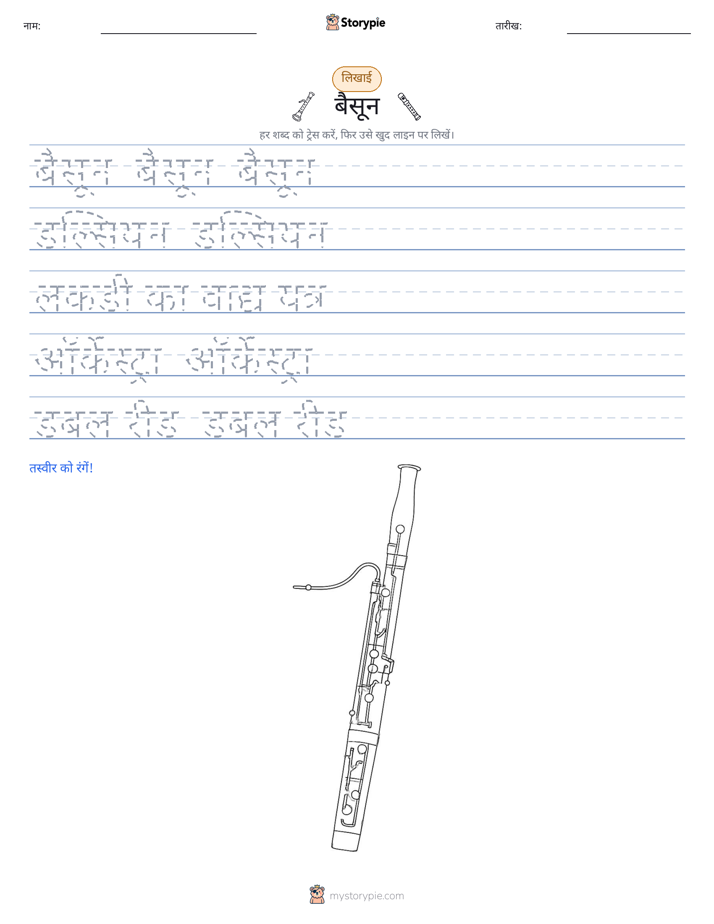 नाम:
Storypie
तारीख:
लिखाई
बैसून
हर शब्द को ट्रेस करें, फिर उसे खुद लाइन पर लिखें।
बैसून बैसून बैसून
डल्सियन डल्सियन
लकड़ी का वाद्य यंत्र
ऑर्केस्ट्रा ऑर्केस्ट्रा
डबल रीड डबल रीड
तस्वीर को रंगें!
mystorypie.com